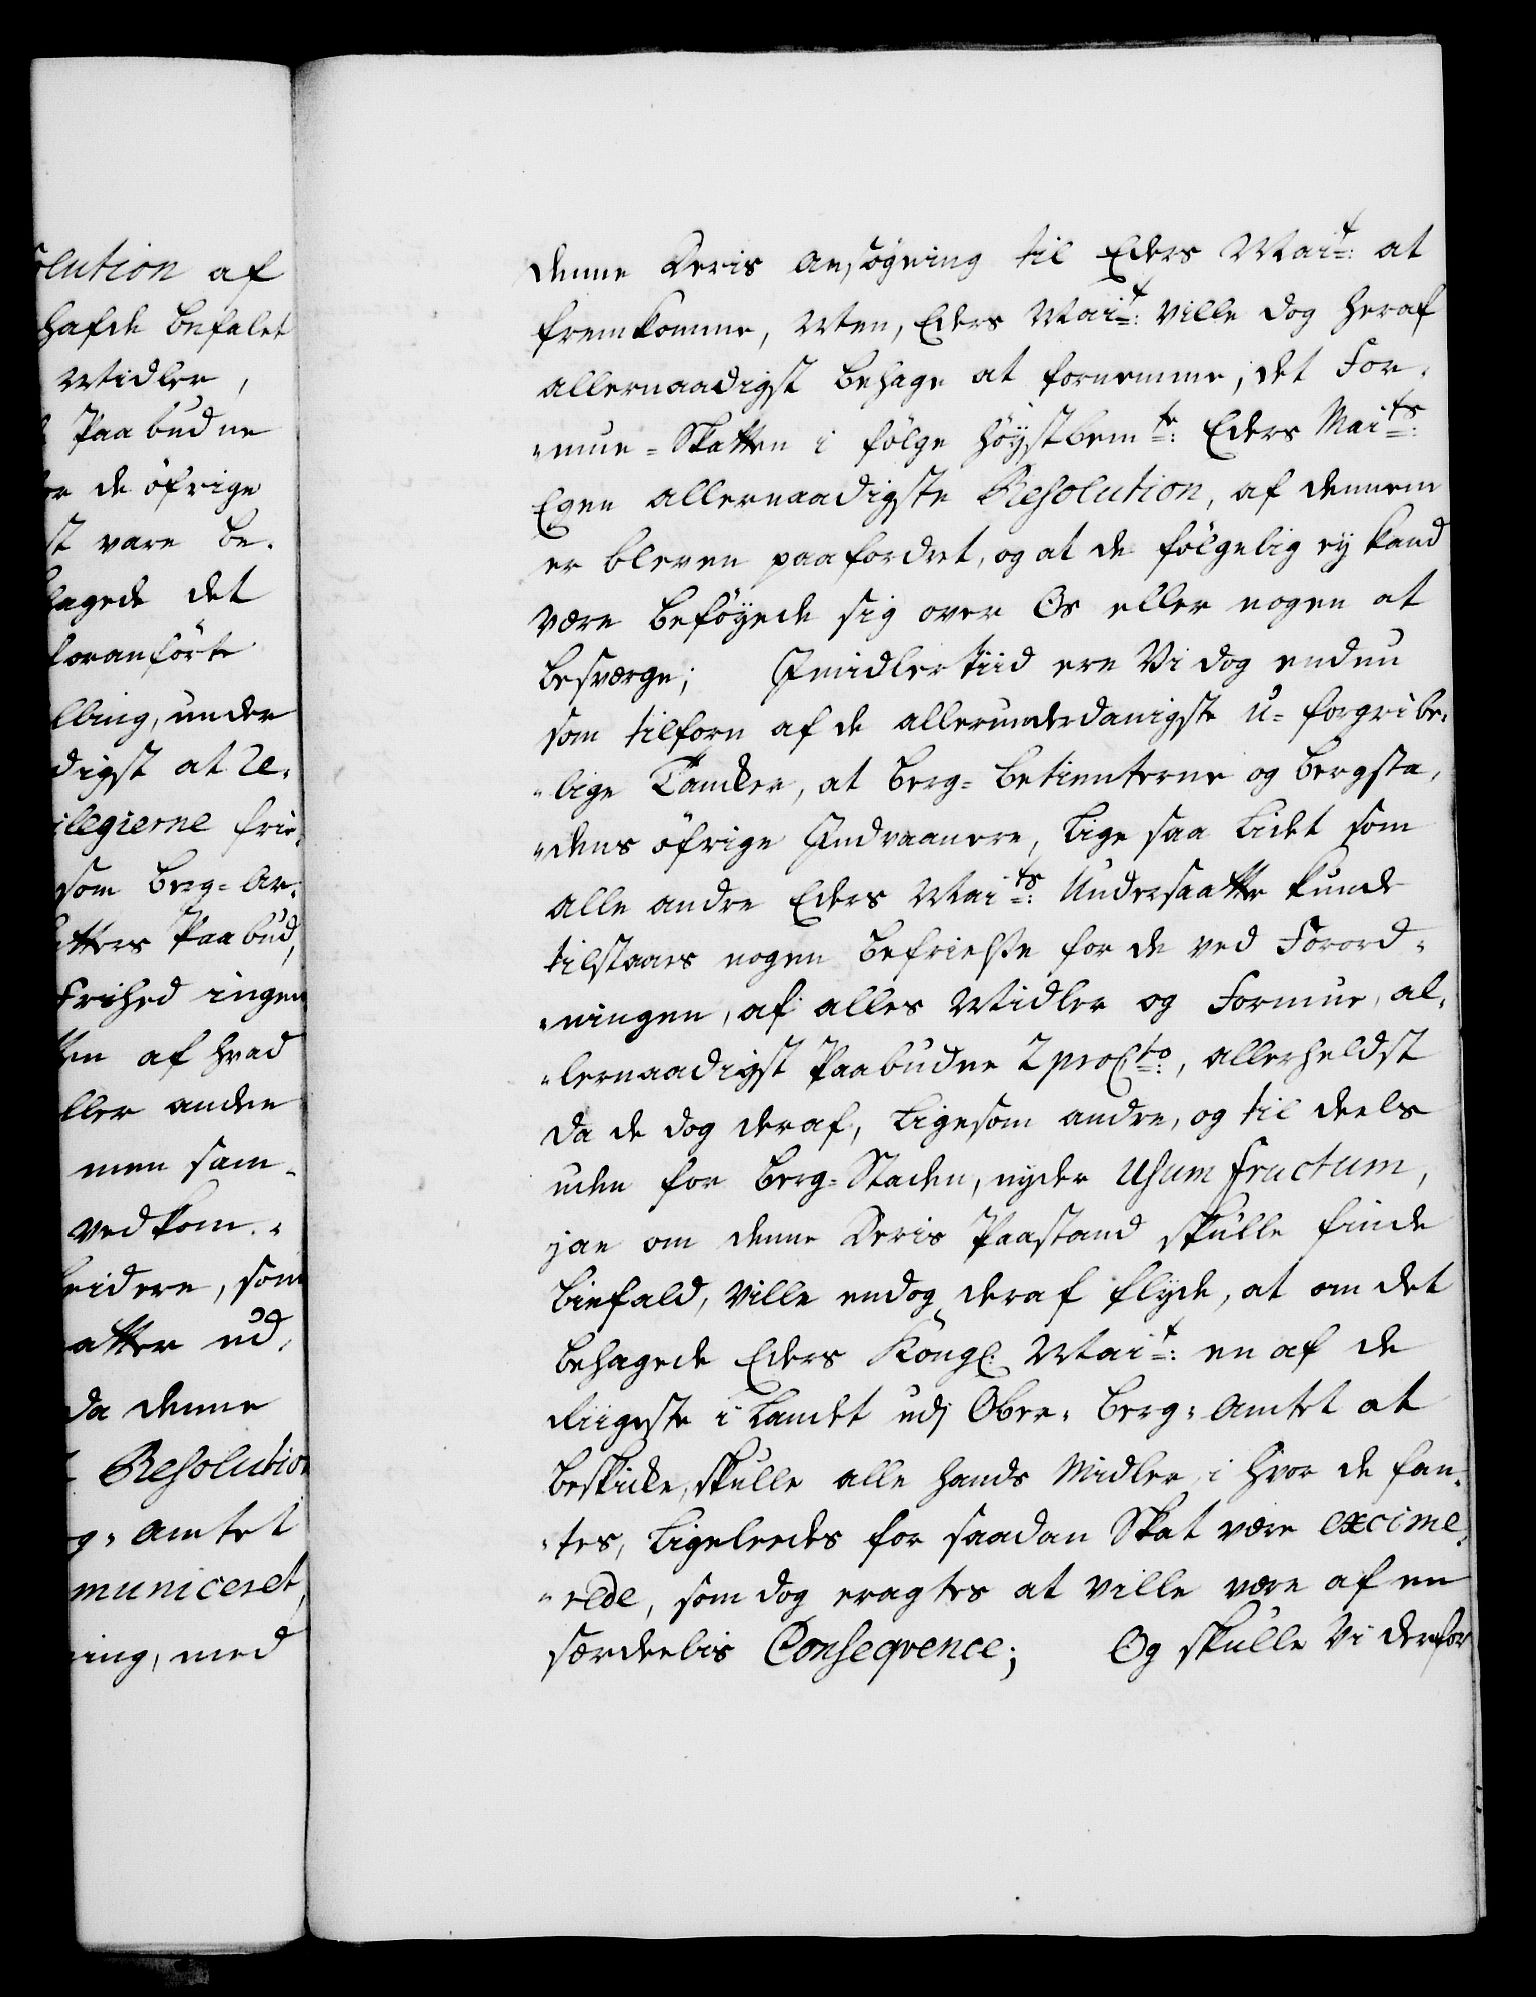 olution af
hafde befalet
Midler,
Paabudne
de öfrige
st vare be-
hagede det
foranförte
lling, under
digst at re-
ilegierne frie-
som Berg-Ar-
atters Paabud,
Frihed ingen
af hvad
ller anden
men sam-
vedkom-
eidere, som
atter ud-
da denne
Resolution
g-Amtet
municeret,
ning, med
denne Deris Ansøgning til Eders Mai:t at
fremkomme, Men, Eders Mai:t ville dog heraf
allernaadigst behage at fornemme, det For-
-mue-Skatten i følge høystbem:te Eders Mai:ts
Egen allernaadigste Resolution, af dennem
er bleven paafordret, og at de følgelig ey kand
være beføyede sig over Os eller nogen at
besværge; Imidlertiid ere Vi dog endnu
som tilforn af de allerunderdanigste u-forgribe-
-lige Tancker, at Berg-Betienterne og Bergsta-
-dens öfrige Indvaanere, lige saa lidet som
alle andre Eders Mai:ts Undersaatter kunde
tilstaaes nogen befrielse for de ved Forord-
-ningen, af alles Midler og Formue, al-
-lernaadigst Paabudne 2 proC:to, allerheldst
da de dog deraf, ligesom andre, og til deels
uden for Berg-Staden, nyder Usum fructum,
jae om denne Deris Paastand skulle finde
biefald, ville endog deraf flyde, at om det
behagede Eders Kongl: Mai:t en af de
Riigeste i Landet udj Ober-Berg-Amtet at
beskicke, skulle alle hands Midler, i hvor de fan-
-tes, ligeleedes for saadan Skat være excime-
-rede, som dog eragtes at ville være af en
særdeelis Conseqvence; Og skulle Vi derfor